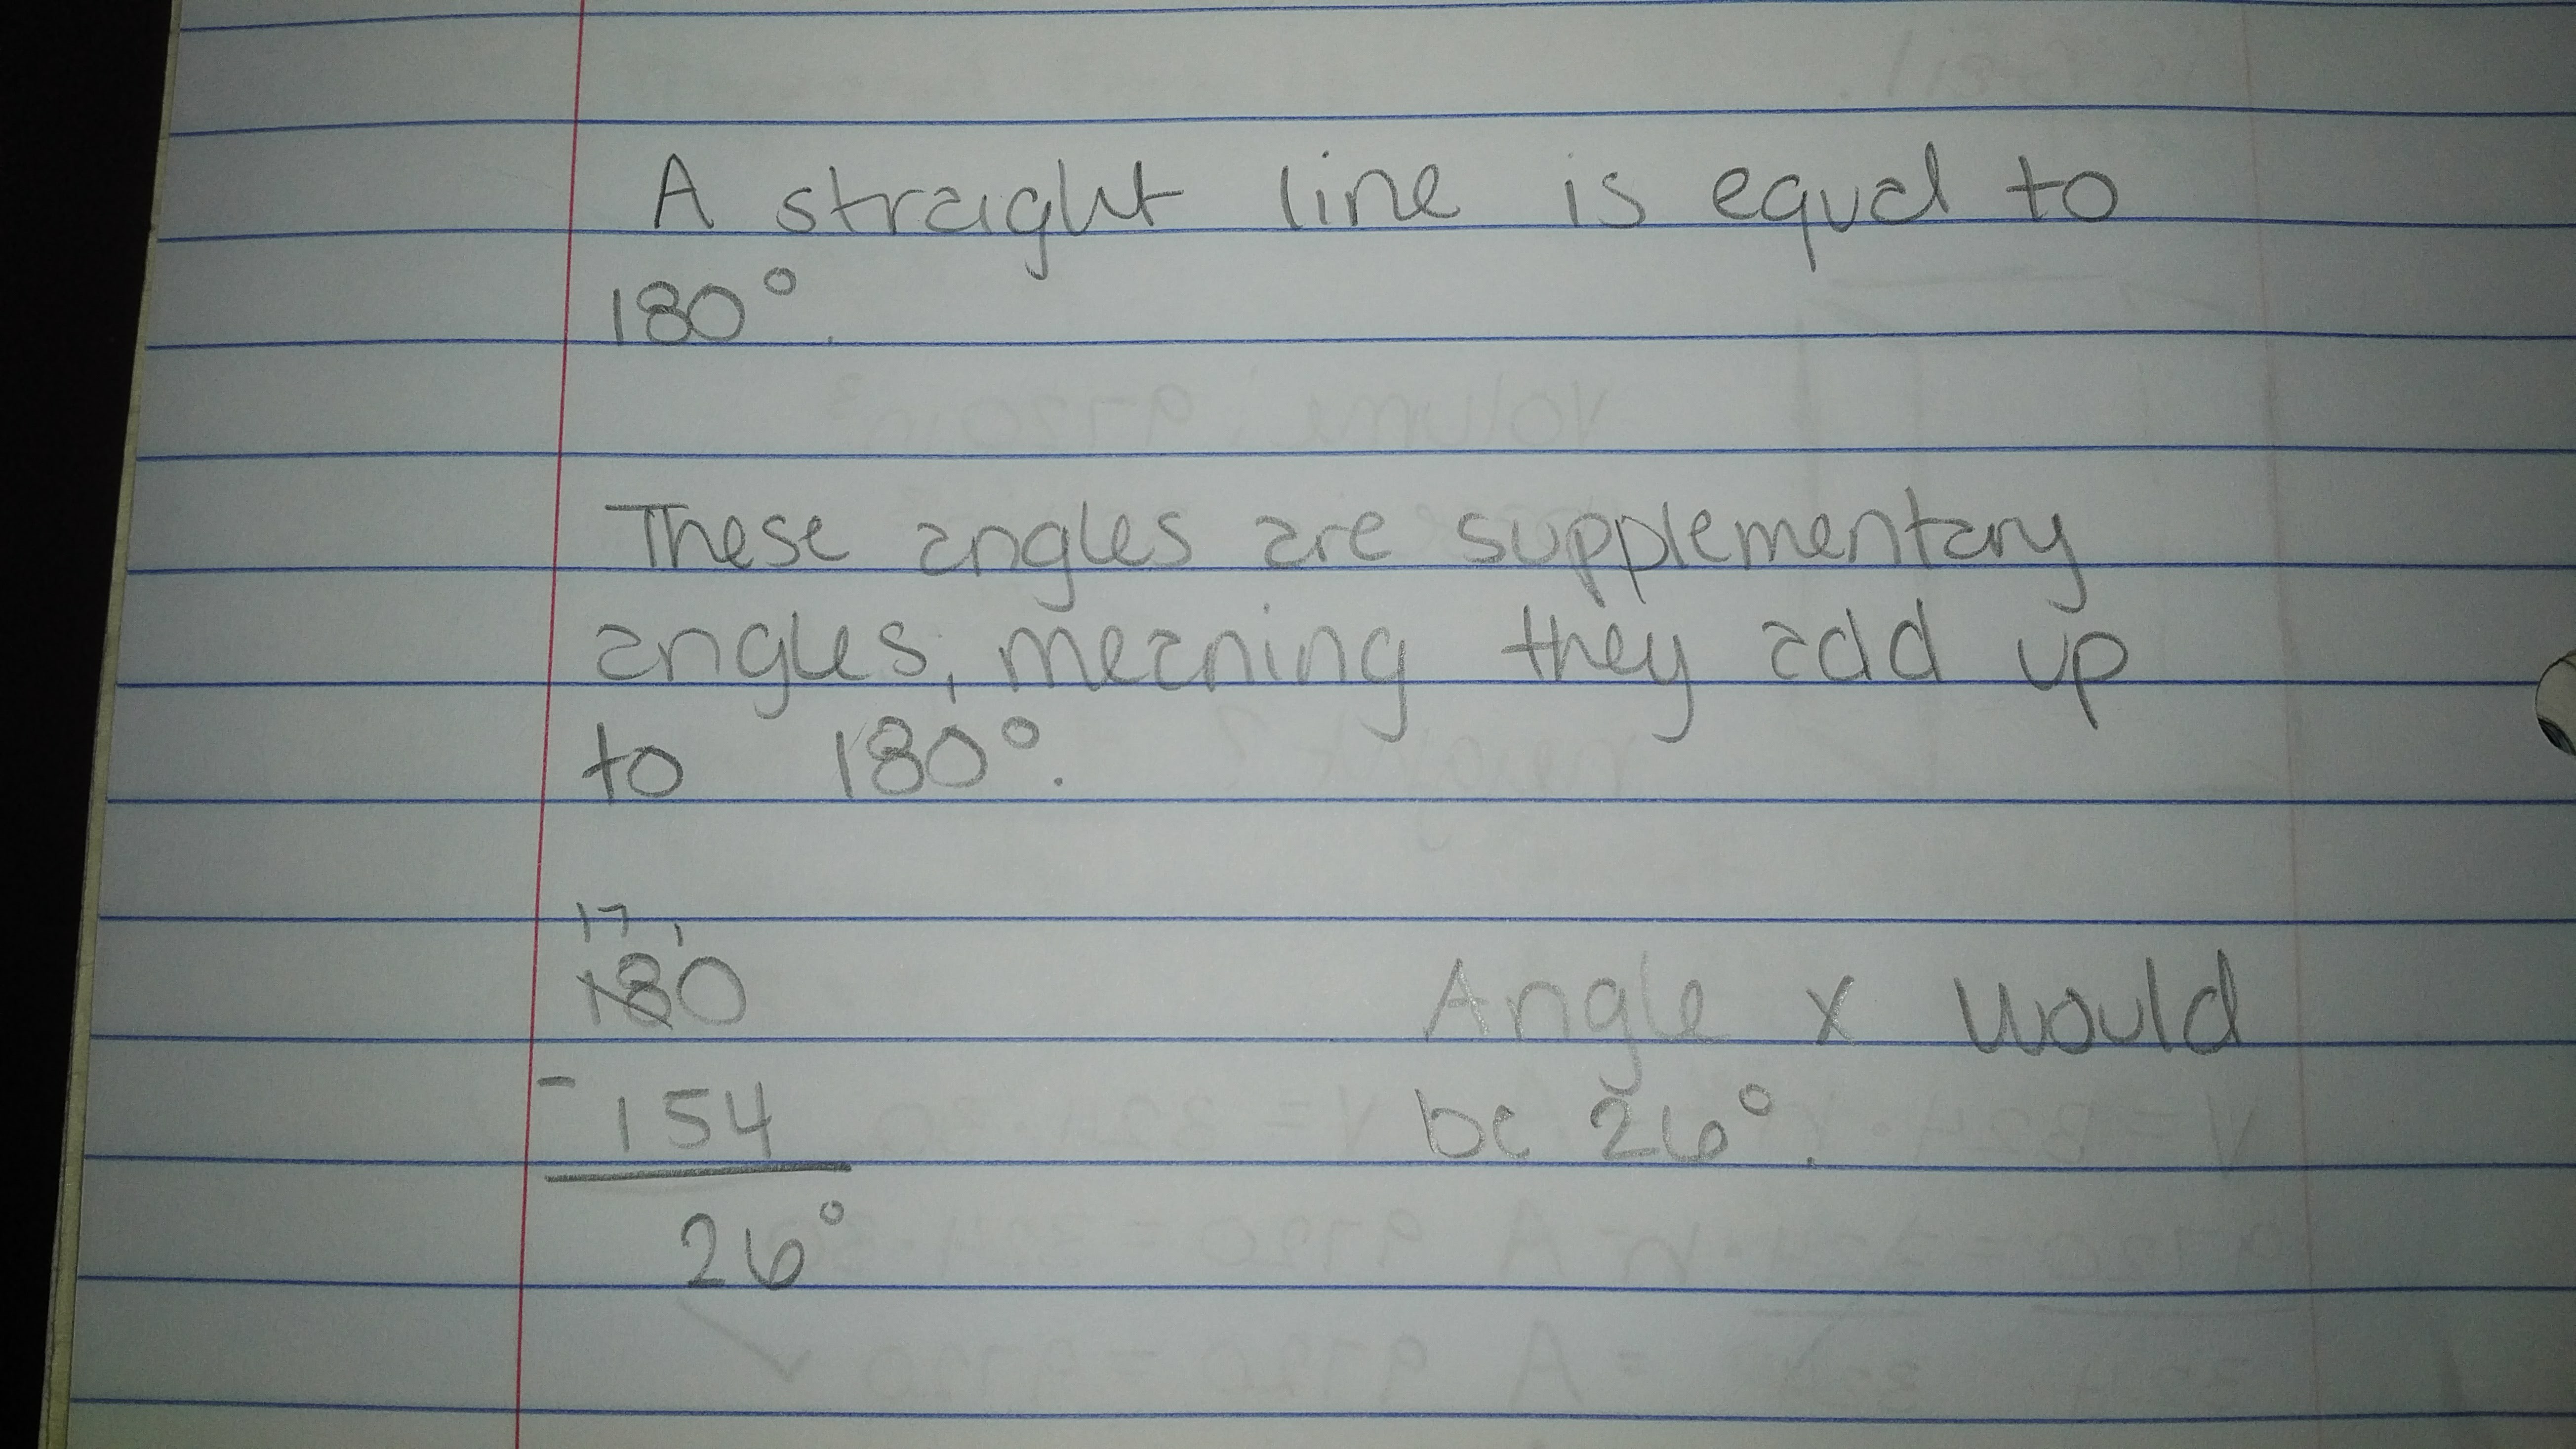 A straight line is equal to
180°.
These angles are supplementary
angles, meaning they add up
to 180°.
17 1
180
Angle x would
- 154
be 26°.
26°